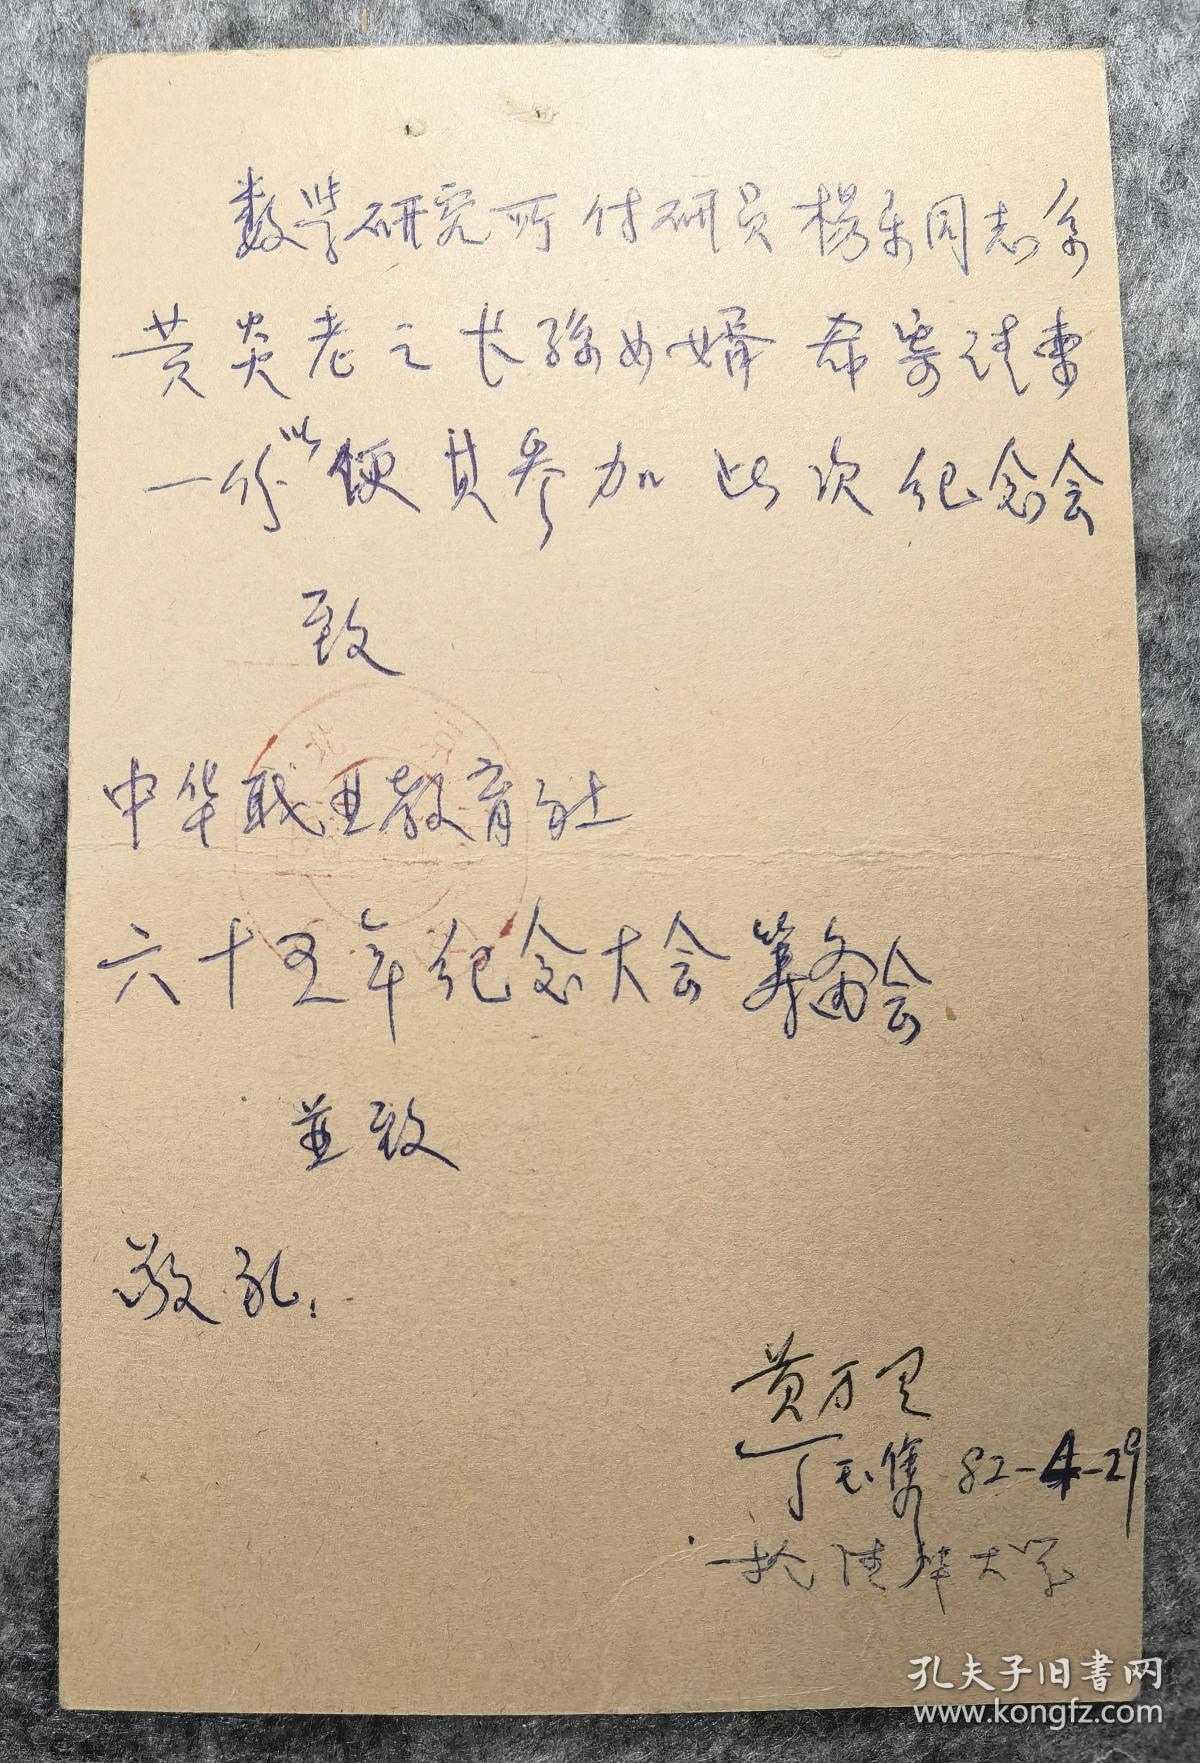 数学研究所付研员杨乐同志系
黄炎老之长孙女婿 希寄请柬
一份以便其参加此次纪念会
致
中华职业教育社
六十五年纪念大会筹备会
并致
敬礼!
黄万里
丁玉隽 82-4-29
于清华大学
孔夫子旧书网
www.kongfz.com